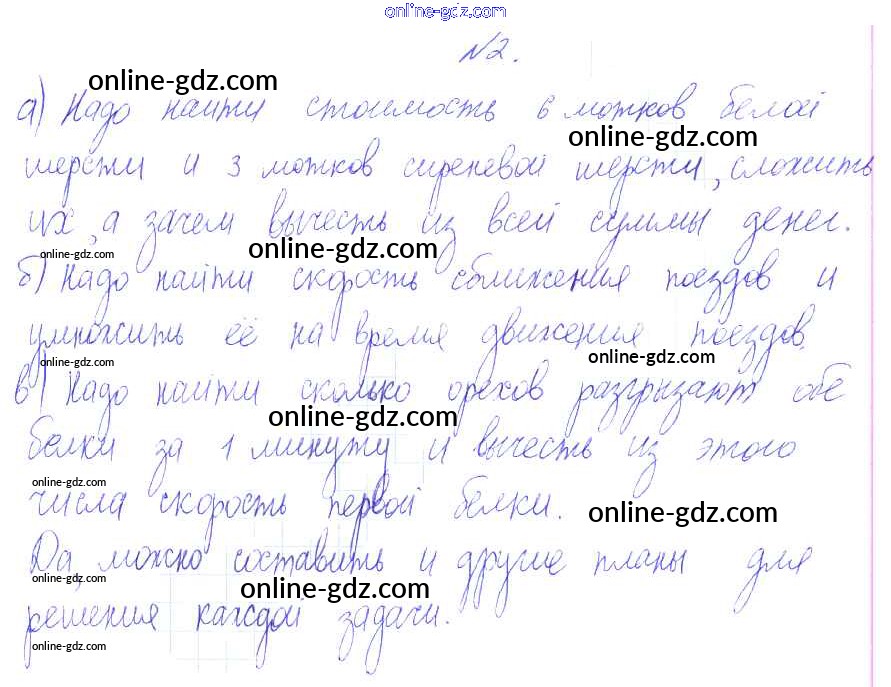 online-gdz.com
№2.
online-gdz.com
а) Надо найти стоимость 6 мотков белой
online-gdz.com
шерсти и 3 мотков сиреневой шерсти, сложить
их, а зачем вычесть из всей суммы денег.
online-gdz.com online-gdz.com
б) Надо найти скорость сближения поездов и
умножить её на время движения поездов.
online-gdz.com online-gdz.com
в) Надо найти сколько орехов разгрызают обе
online-gdz.com
белки за 1 минуту и вычесть из этого
online-gdz.com
числа скорость первой белки.
online-gdz.com
Да, можно составить и другие планы для
online-gdz.com online-gdz.com
решения каждой задачи.
online-gdz.com